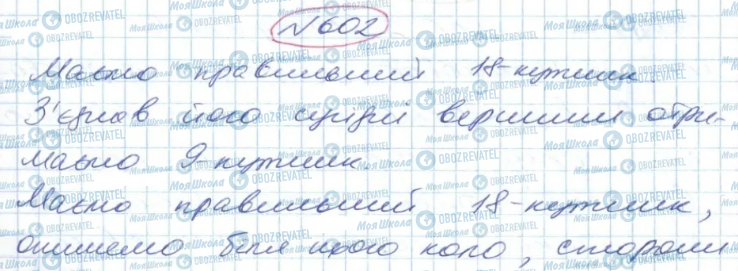 №602
Маємо правильний 18-кутник
З'єднав його сусідні вершини отри-
маємо 9-кутник.
Маємо правильний 18-кутник,
опишемо біля нього коло, сторони